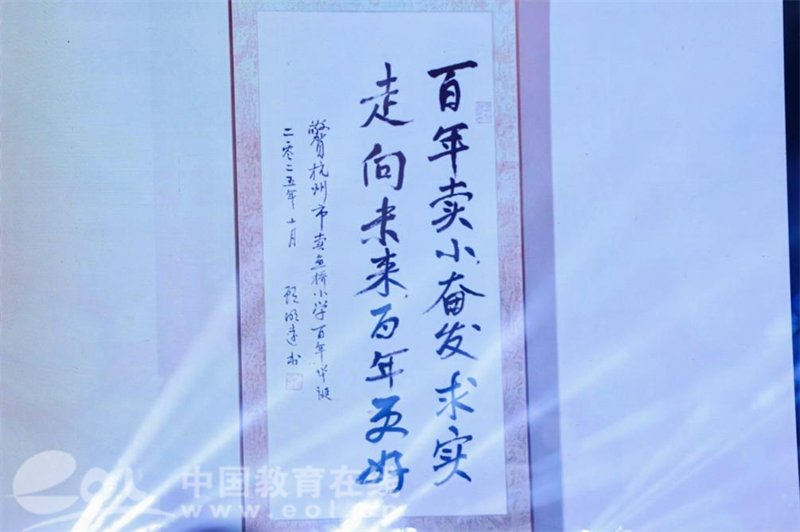 百年卖小奋发求实
走向未来百年更好
贺杭州市卖鱼桥小学百年华诞
二零二五年十月 顾明远书
中国教育在线
www.eol.cn